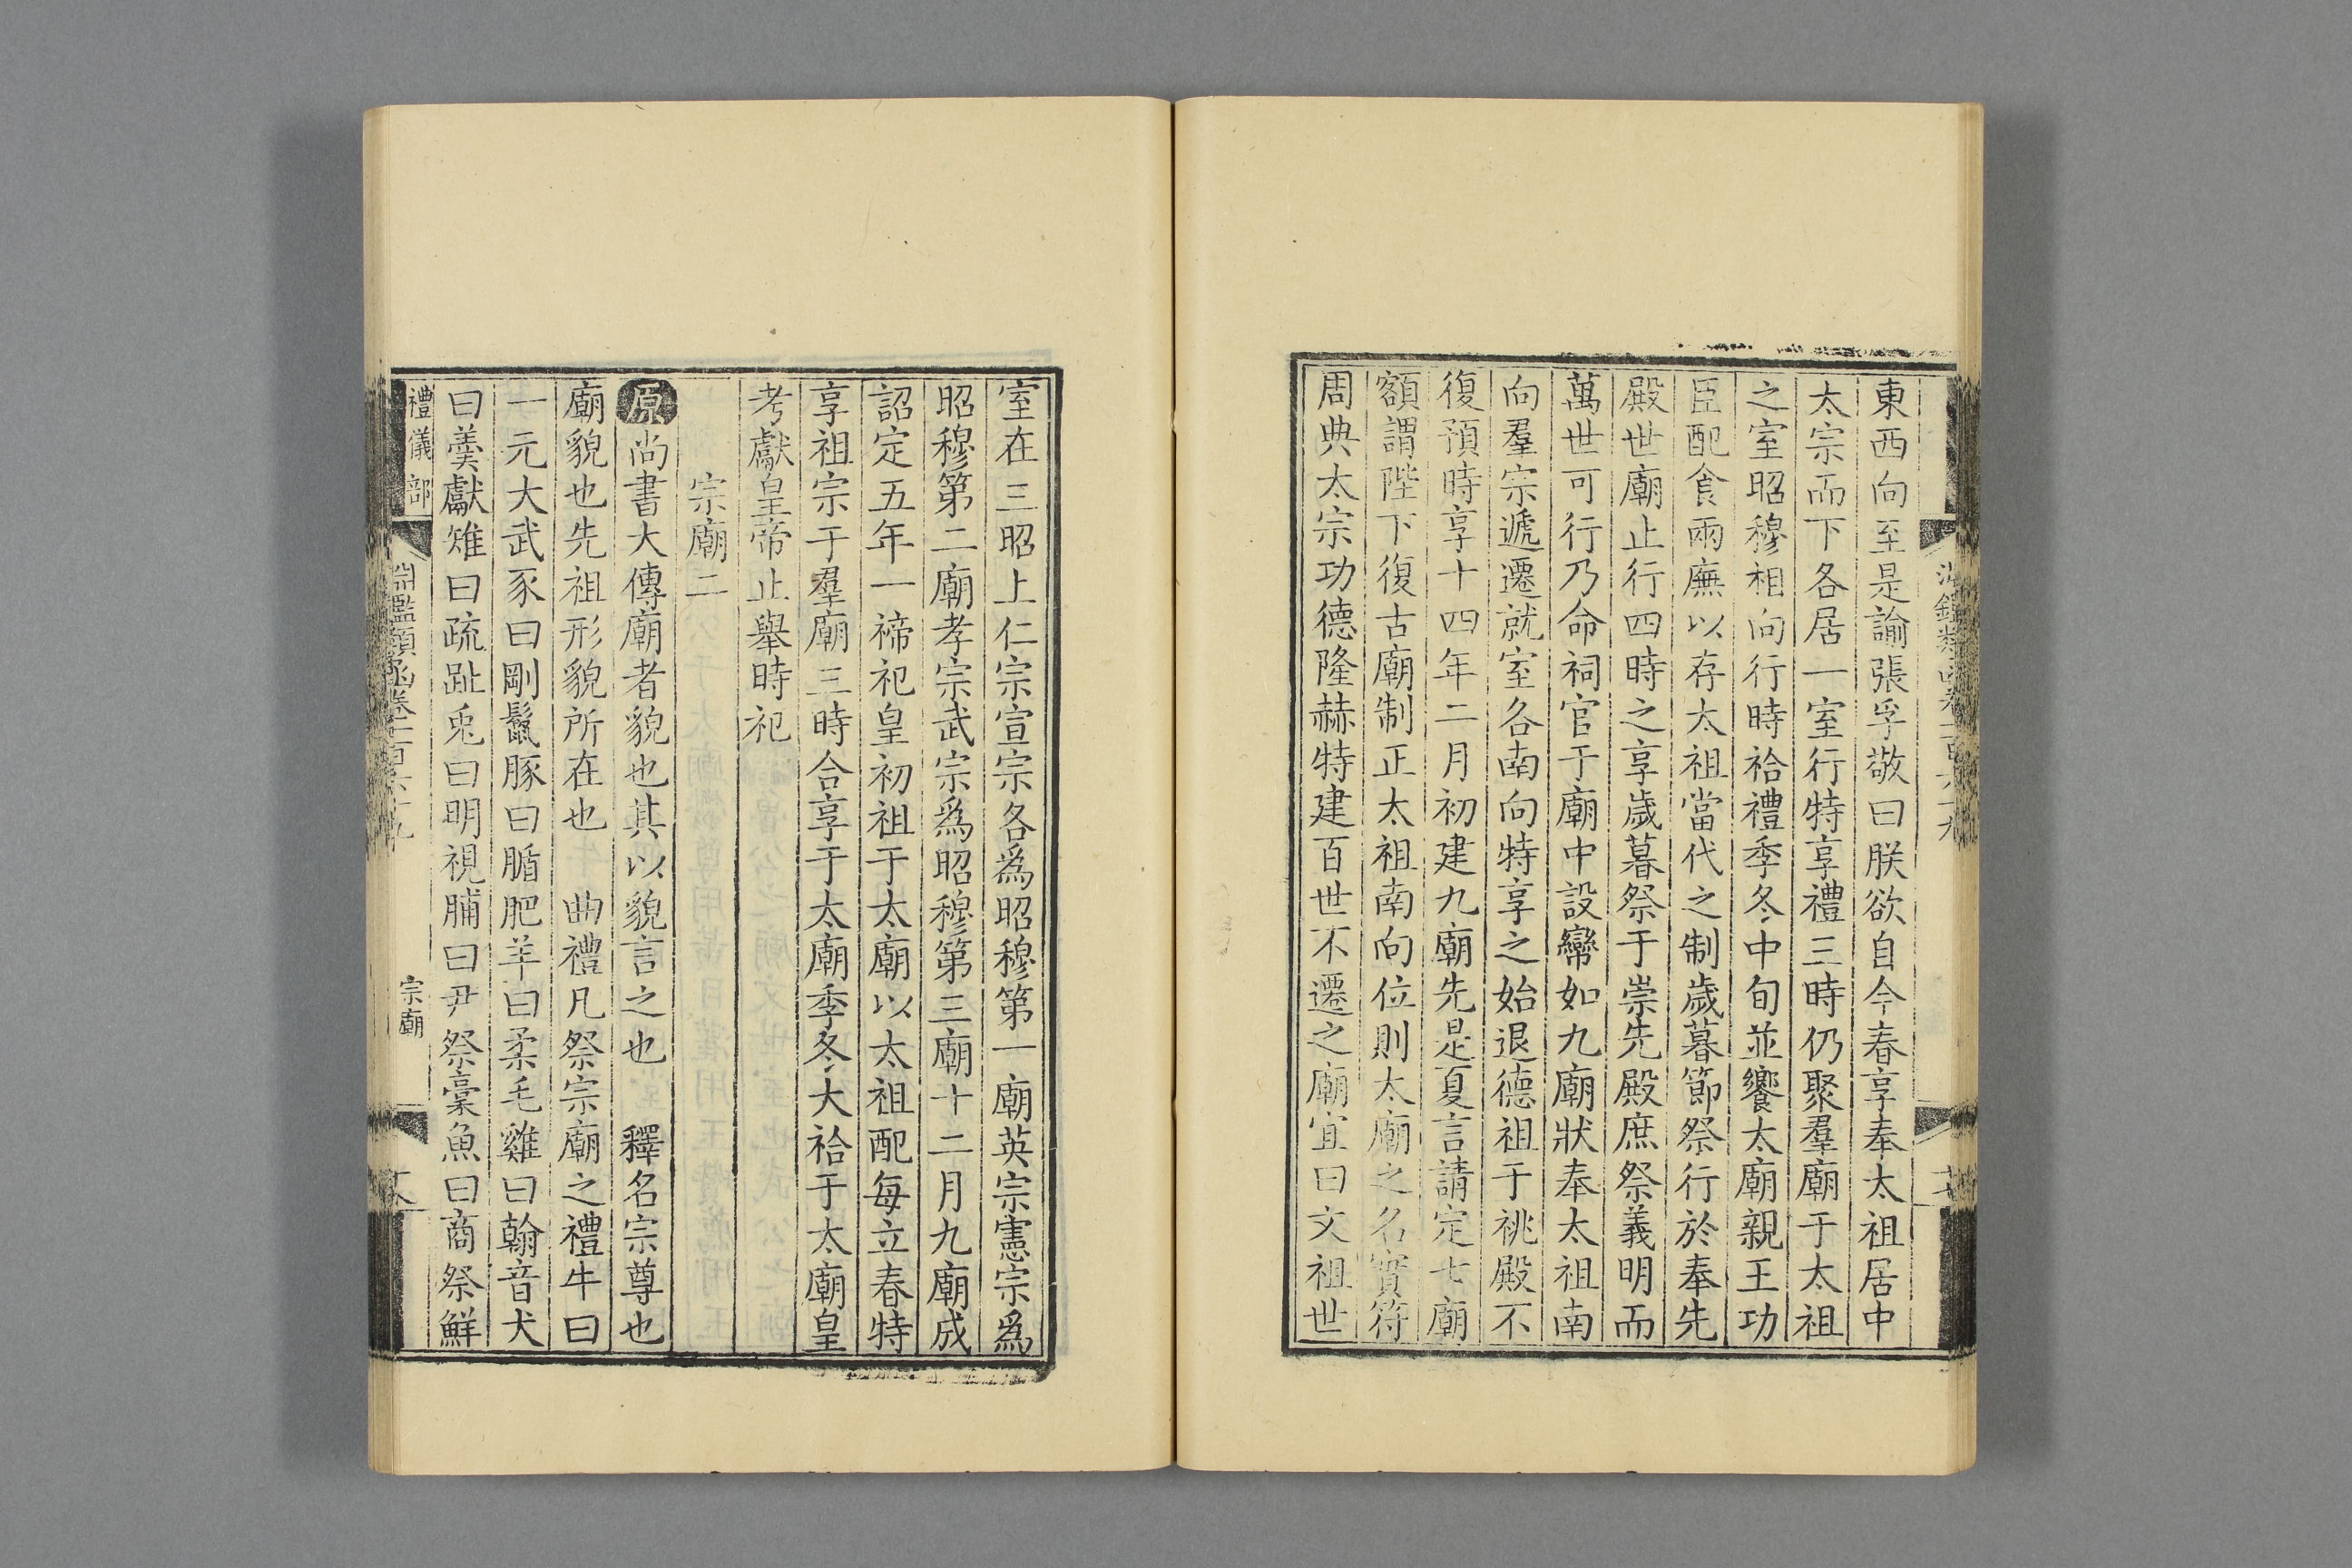 東西向至是諭張孚敬曰朕欲自今春享奉太祖居中
太宗而下各居一室行特享禮三時仍聚羣廟于太祖
之室昭穆相向行時祫禮季冬中旬並饗太廟親王功
臣配食兩廡以存太祖當代之制歲暮節祭行於奉先
殿世廟止行四時之享歲暮祭于崇先殿庶祭義明而
萬世可行乃命祠官于廟中設㡩如九廟狀奉太祖南
向羣宗遞遷就室各南向特享之始退德祖于祧殿不
復預時享十四年二月初建九廟先是夏言請定七廟
額謂陛下復古廟制正太祖南向位則太廟之名實符
周典太宗功德隆赫特建百世不遷之廟宜曰文祖世
室在三昭上仁宗宣宗各爲昭穆第一廟英宗憲宗爲
昭穆第二廟孝宗武宗爲昭穆第三廟十二月九廟成
詔定五年一禘祀皇初祖于太廟以太祖配每立春特
享祖宗于羣廟三時合享于太廟季冬大祫于太廟皇
考獻皇帝止舉時祀
宗廟二
原尚書大傳廟者貌也其以貌言之也 釋名宗尊也
廟貌也先祖形貌所在也 曲禮凡祭宗廟之禮牛曰
一元大武豕曰剛鬣豚曰腯肥羊曰柔毛雞曰翰音犬
曰羹獻雉曰疏趾兎曰明視脯曰尹祭槀魚曰商祭鮮
禮儀部 淵鑑類函卷一百六十九 宗廟